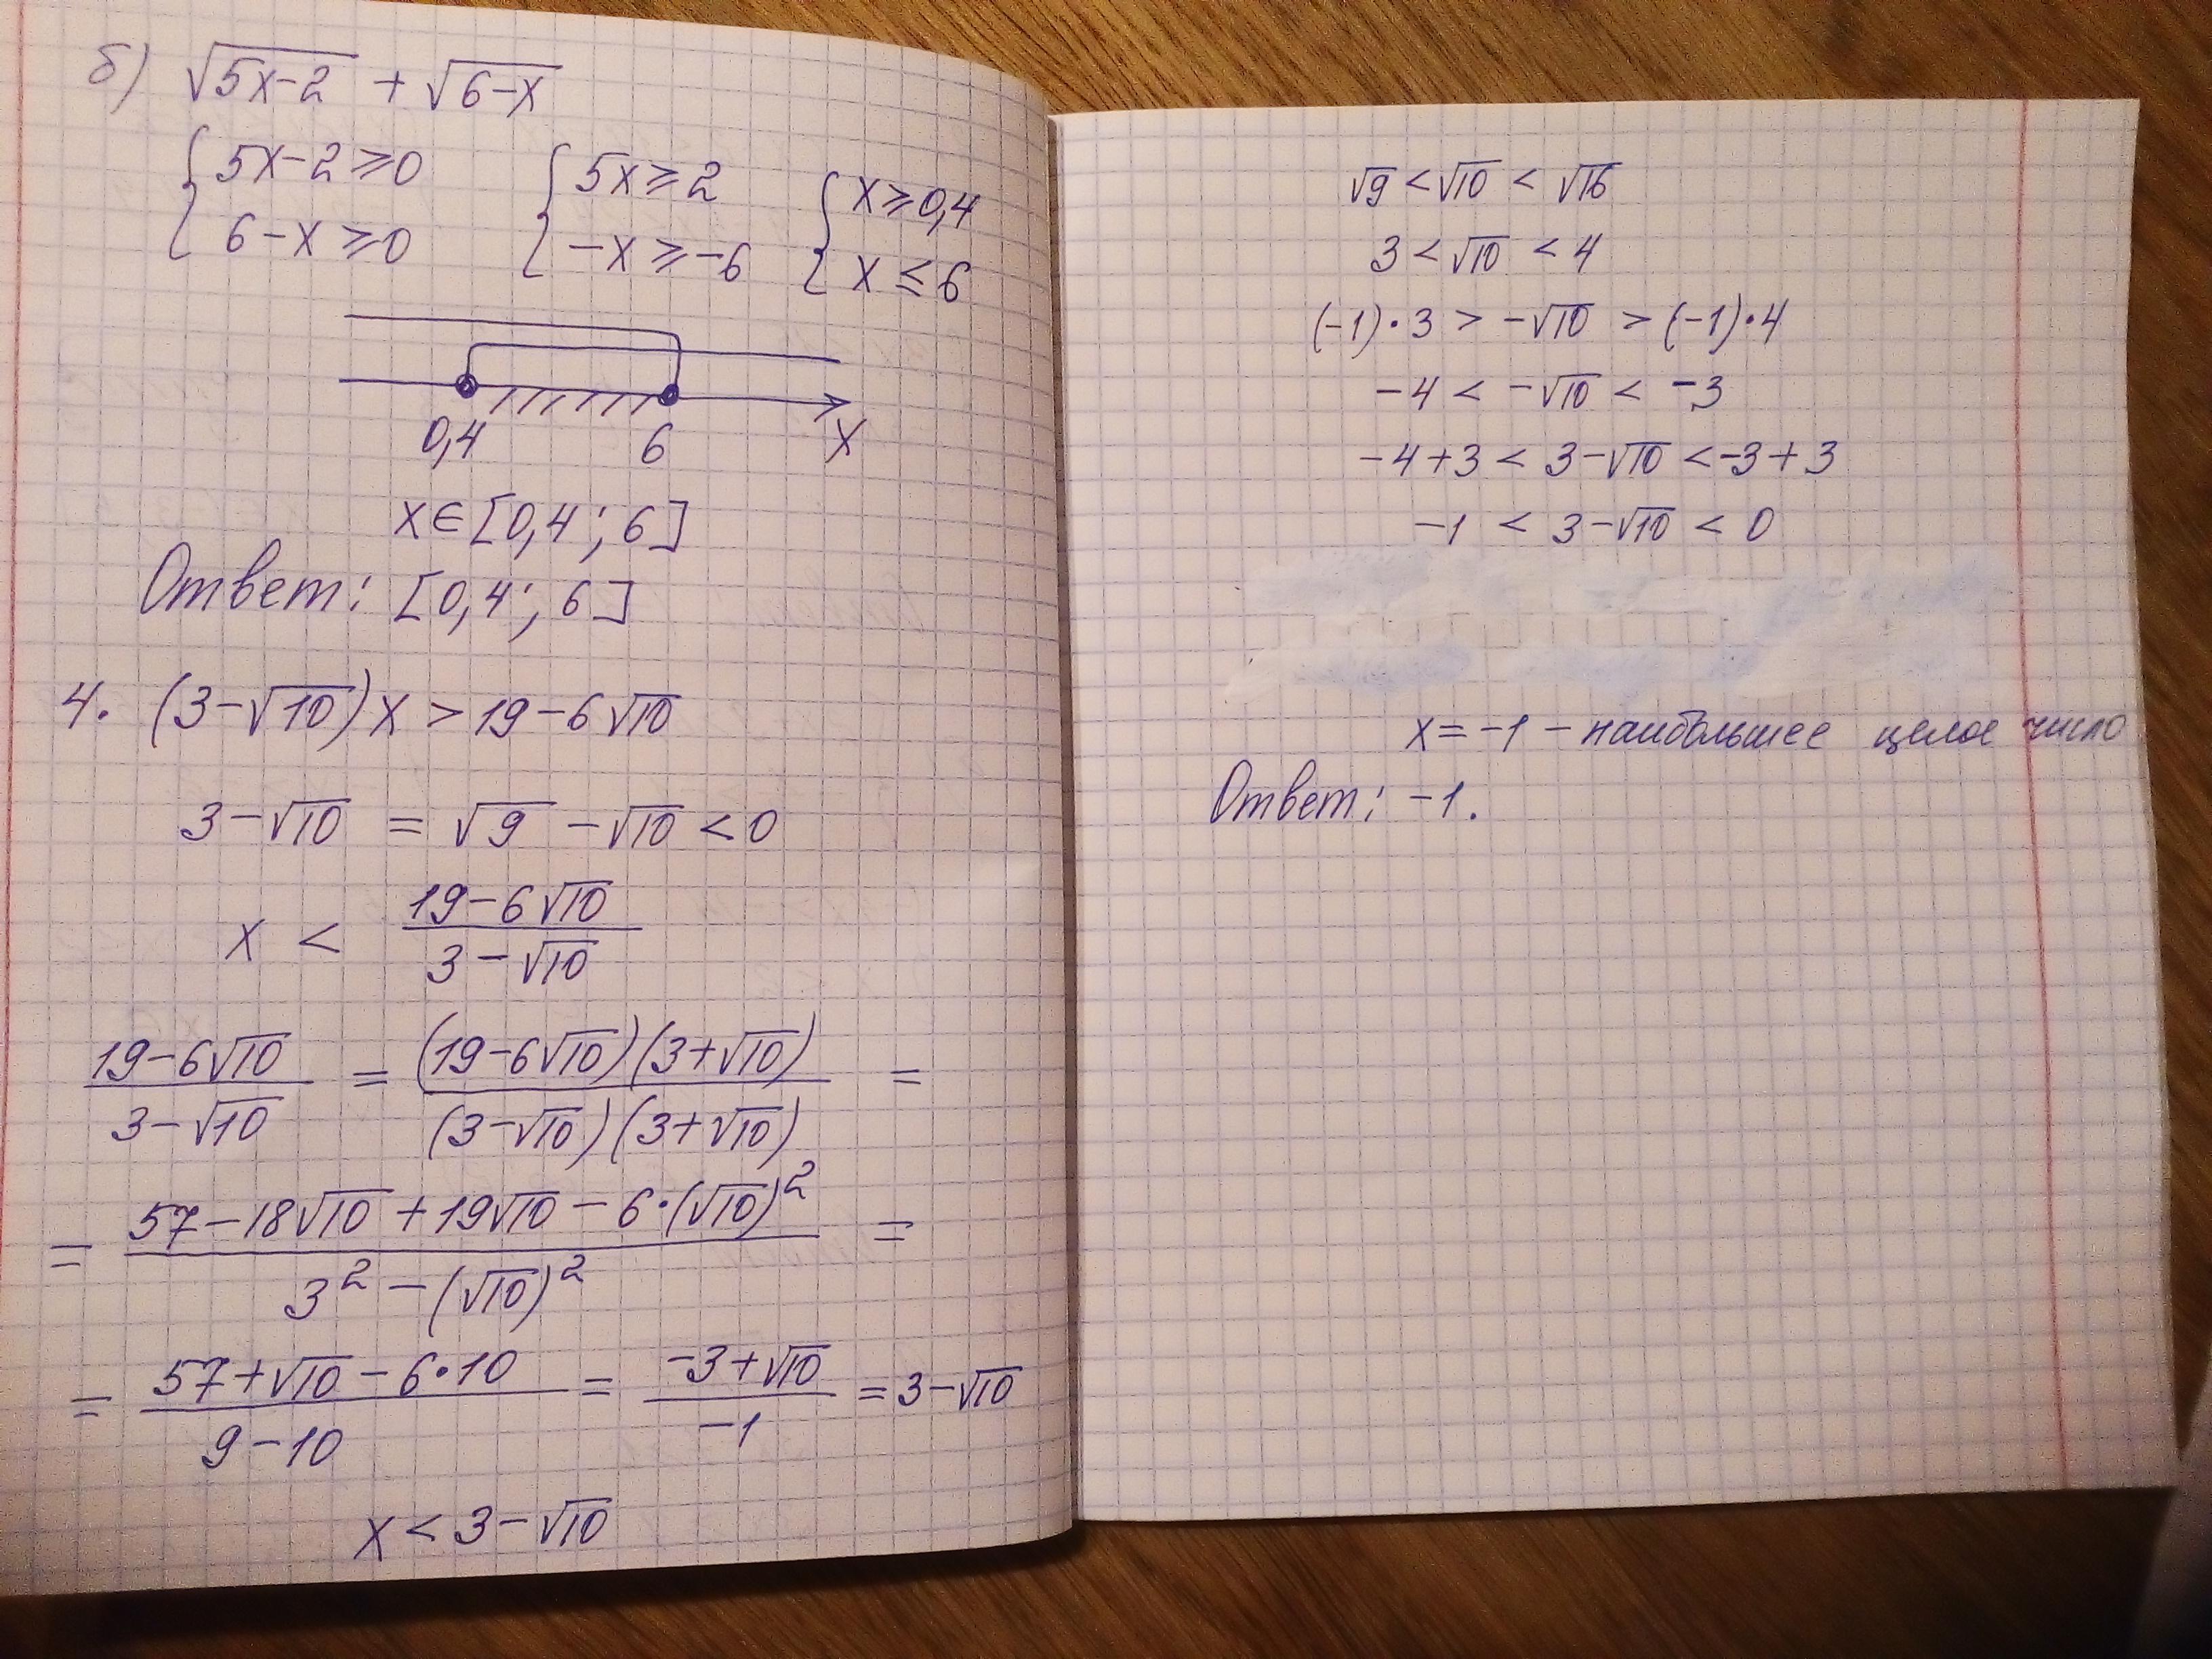 б) √(5x-2) + √(6-x)
{5x-2≥0 {5x≥2 {x≥0,4
{6-x≥0 {-x≥-6 {x≤6
0,4 6 x
x∈[0,4; 6]
Ответ: [0,4; 6]
4. (3-√10)x > 19-6√10
3-√10 = √9 -√10 < 0
x < (19-6√10)/(3-√10)
(19-6√10)/(3-√10) = ((19-6√10)(3+√10))/((3-√10)(3+√10)) =
= (57-18√10+19√10-6·(√10)²)/(3²-(√10)²) =
= (57+√10-6·10)/(9-10) = (-3+√10)/(-1) = 3-√10
x < 3-√10
√9 < √10 < √16
3 < √10 < 4
(-1)·3 > -√10 > (-1)·4
-4 < -√10 < -3
-4+3 < 3-√10 < -3+3
-1 < 3-√10 < 0
x = -1 - наибольшее целое число
Ответ: -1.